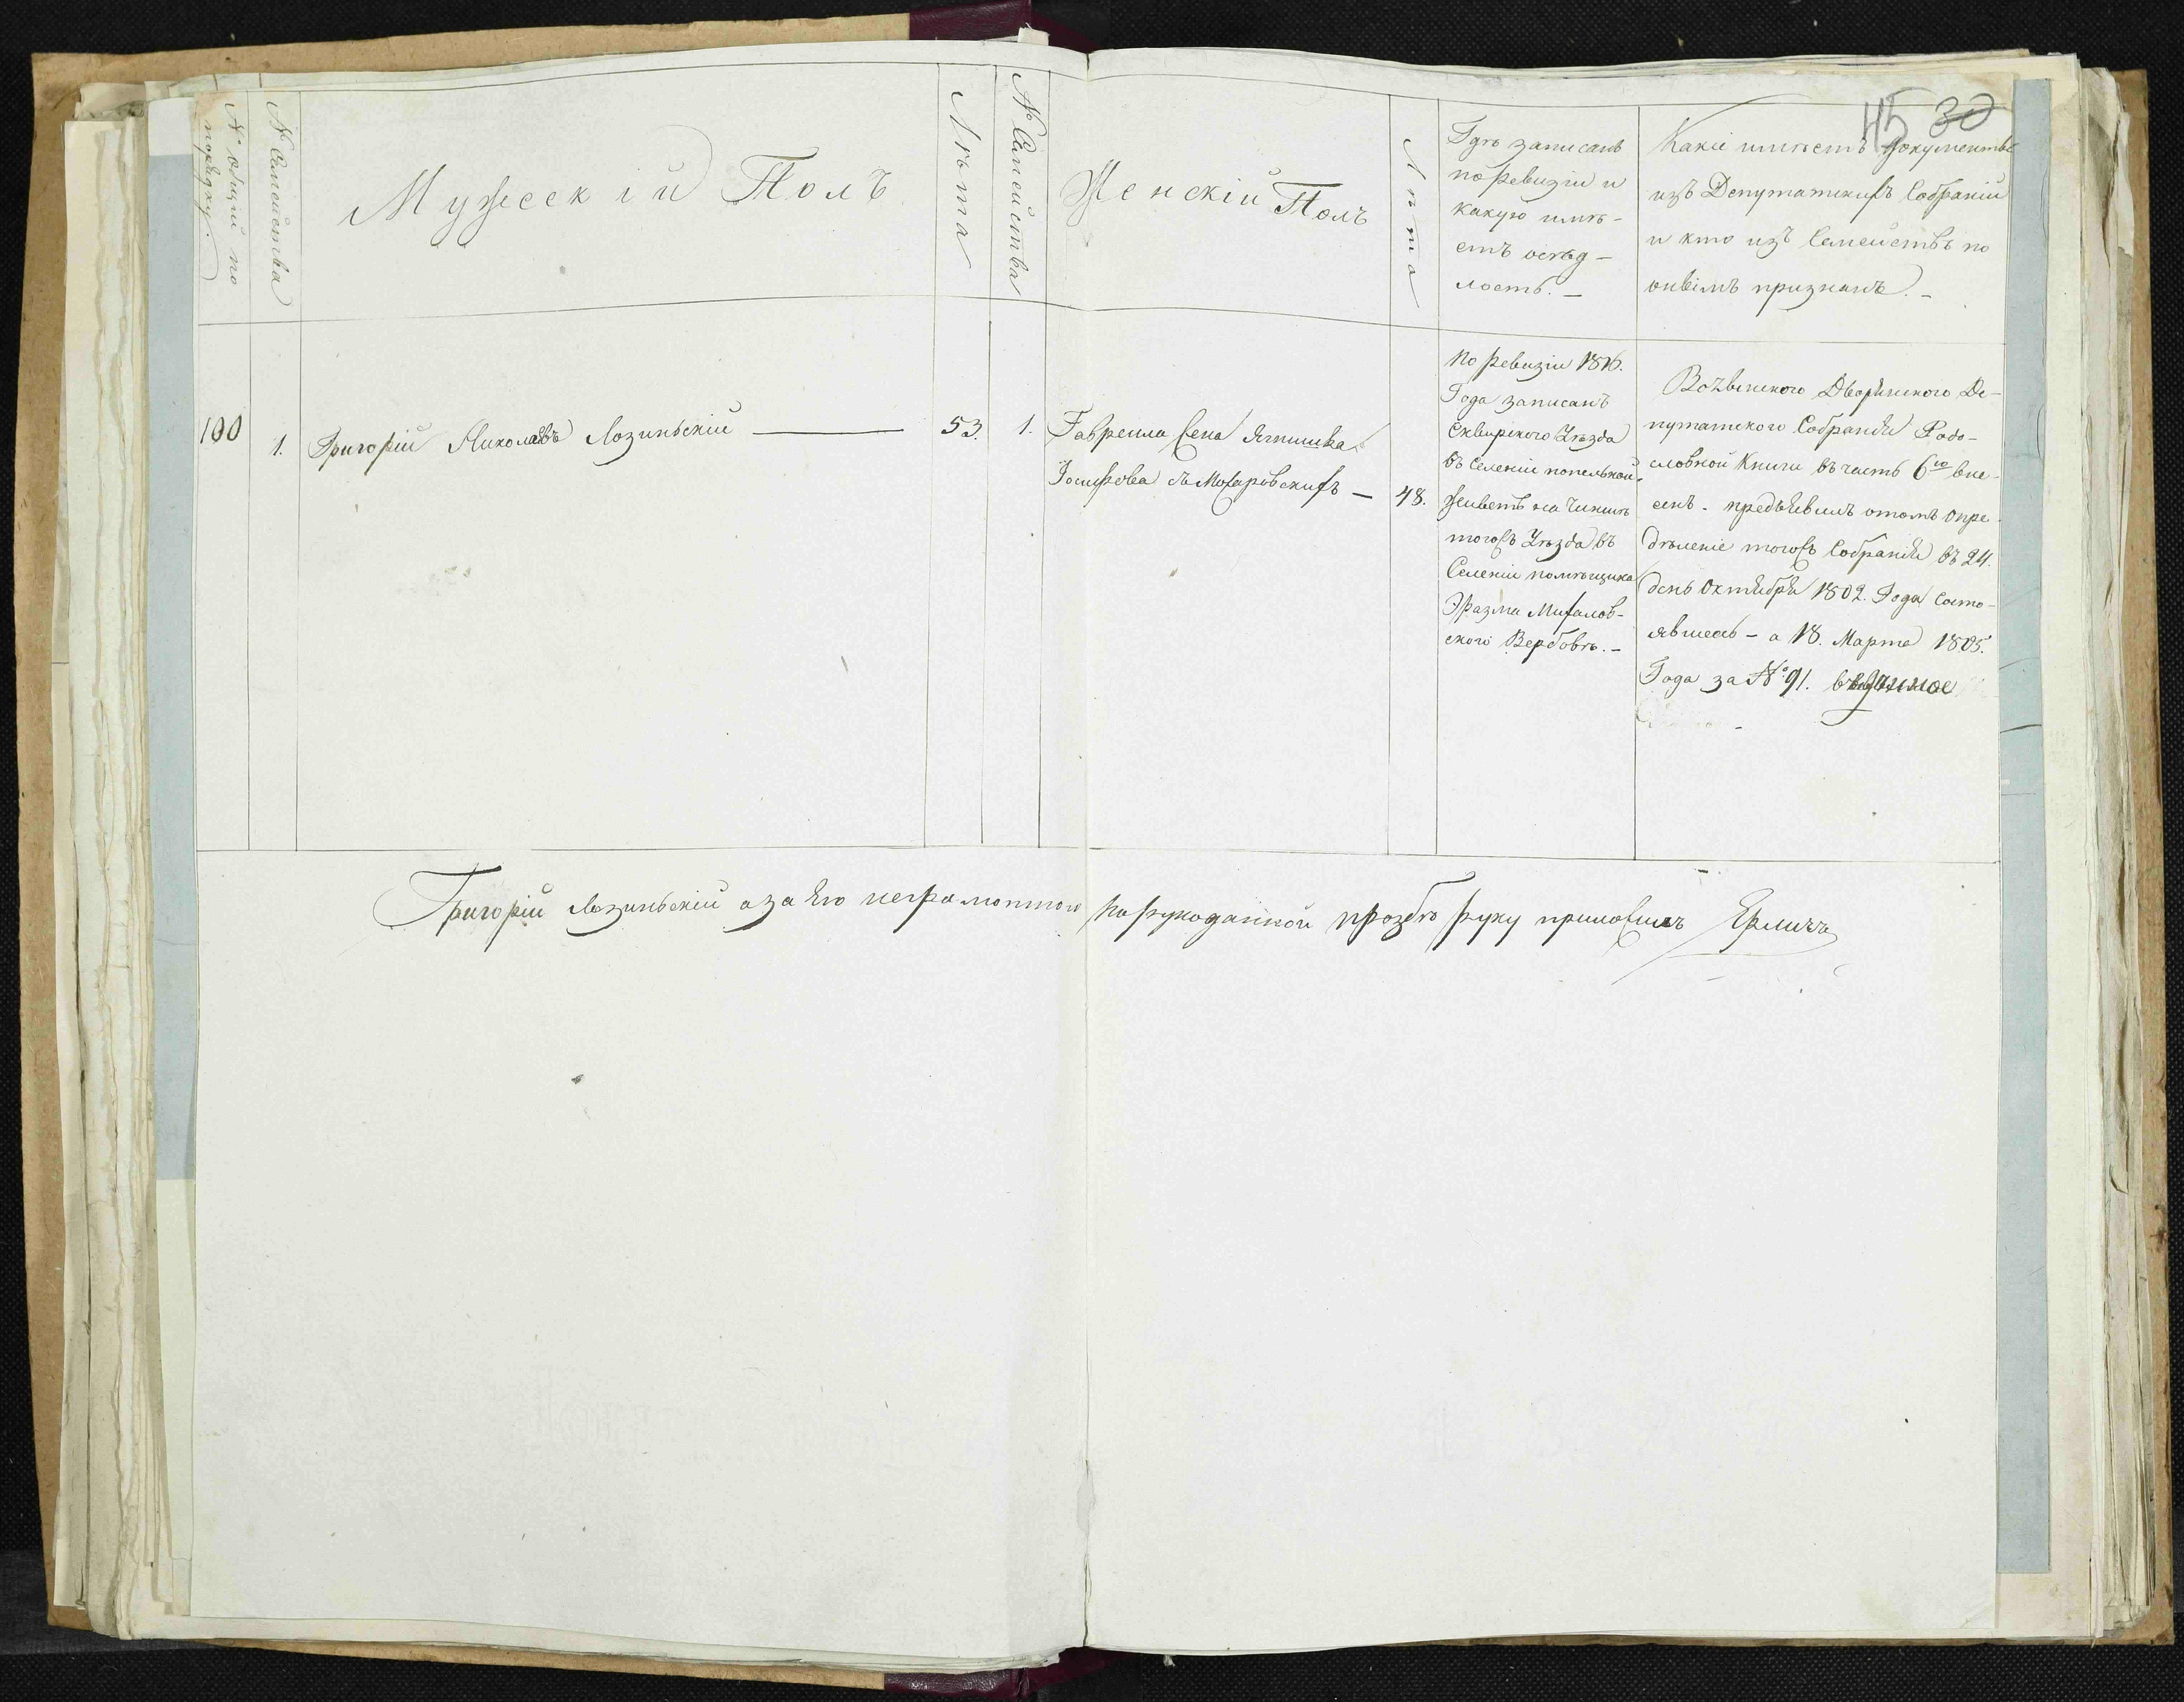 45 30
№ общий по
порядку.
№ Семейства
Мужескій Полъ
Лѣта
№ Семейства
Женскій Полъ
Лѣта
Гдѣ записанъ
по ревизіи и
какую имѣ-
етъ осѣд-
лость. —
Какіе имѣетъ документы
изъ Депутатскихъ Собраній
и кто изъ Семействъ по
онымъ признанъ. —
100
1.
Григорій Николаевъ Лозиньскій —
53.
1.
Гавреила жена Ягнишка
Іосифова съ Мохаровскихъ —
48.
По ревизіи 1816.
Года записанъ
Сквирского Уѣзда
въ Селеніи попельной.
Живетъ на Чиншѣ
тогожъ Уѣзда въ
Селеніи помѣщика
Эразма Михалов-
ского Вербовѣ. —
Волынского Дворянского Де-
путатского Собранія Родо-
словной Книги въ часть 6ю вне-
сенъ - предъявилъ о томъ Опре-
дѣленіе тогожъ Собранія въ 24.
день Октября 1802. Года состо-
явшеесь - а 18. Марта 1805.
Года за № 91. выданное
Григорій Лозиньскій а за Его неграмотного по рукоданной прозбѣ руку приложилъ Ярличъ